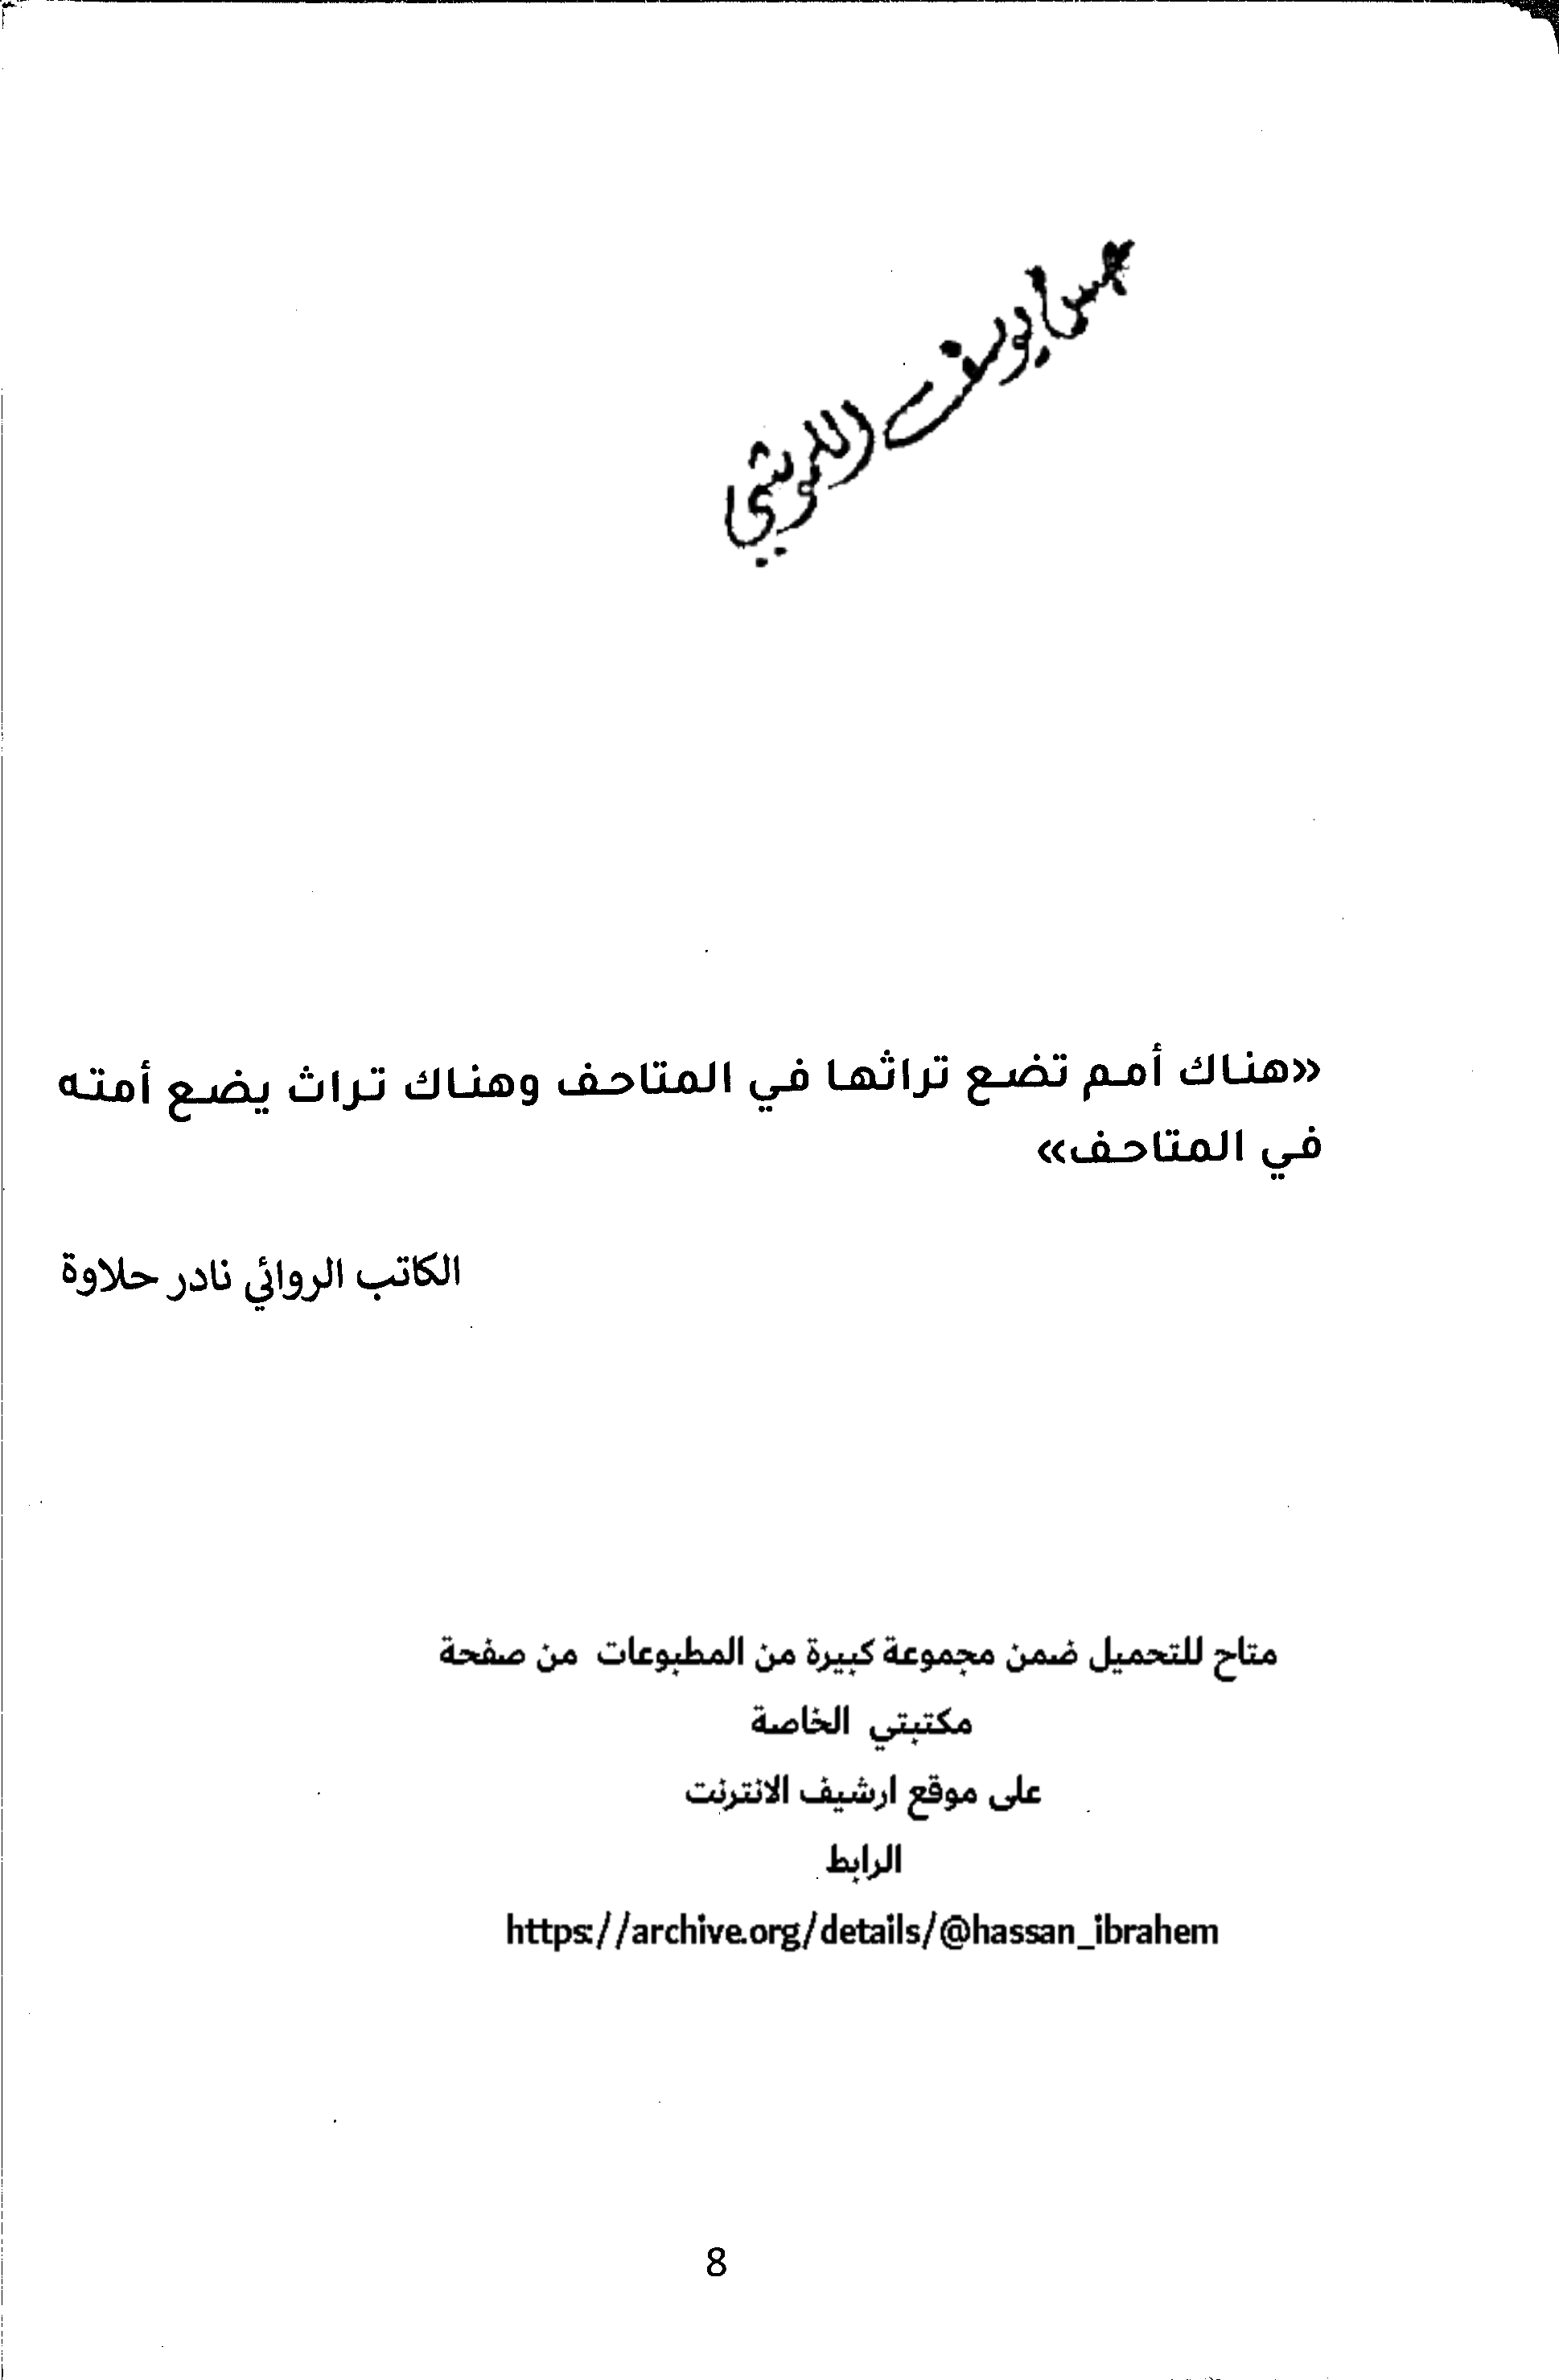 «هناك أمم تضع تراثها في المتاحف وهناك تراث يضع أمته
في المتاحف»
الكاتب الروائي نادر حلاوة
متاح للتحميل ضمن مجموعة كبيرة من المطبوعات من صفحة
مكتبتي الخاصة
على موقع ارشيف الانترنت
الرابط
https://archive.org/details/@hassan_ibrahem
8